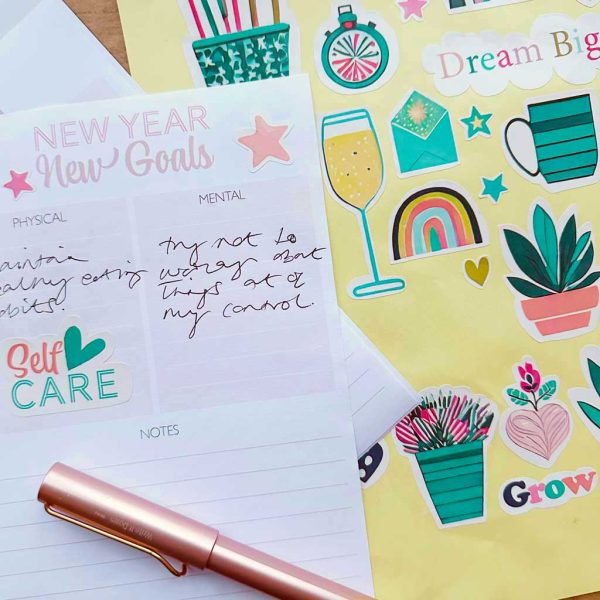 NEW YEAR
New Goals
PHYSICAL
MENTAL
eating
try not to
worry about
things out of
my control.
Self
CARE
NOTES
Dream Big
Grow